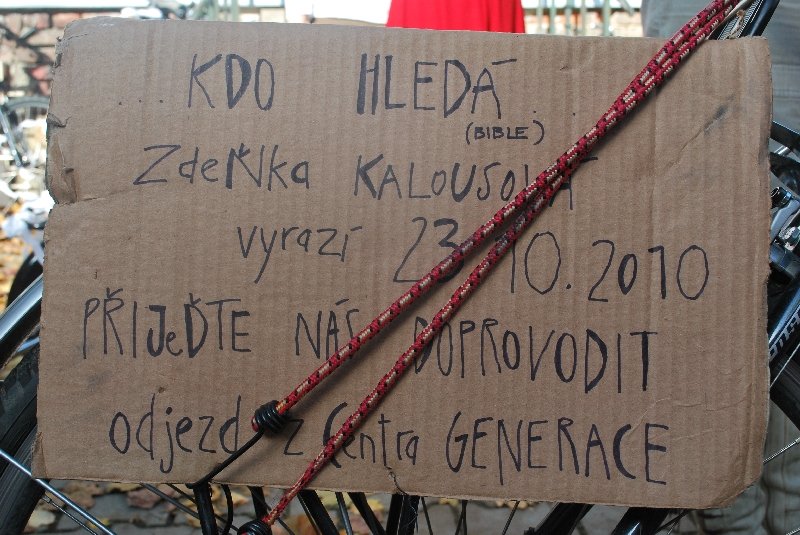 ... KDO HLEDÁ
(BIBLE)
ZdeŇka KALOUSOVÁ
vyrazí 23.10.2010
PŘIJeĎTE NÁS DOPROVODIT
odjezd z Centra GENERACE